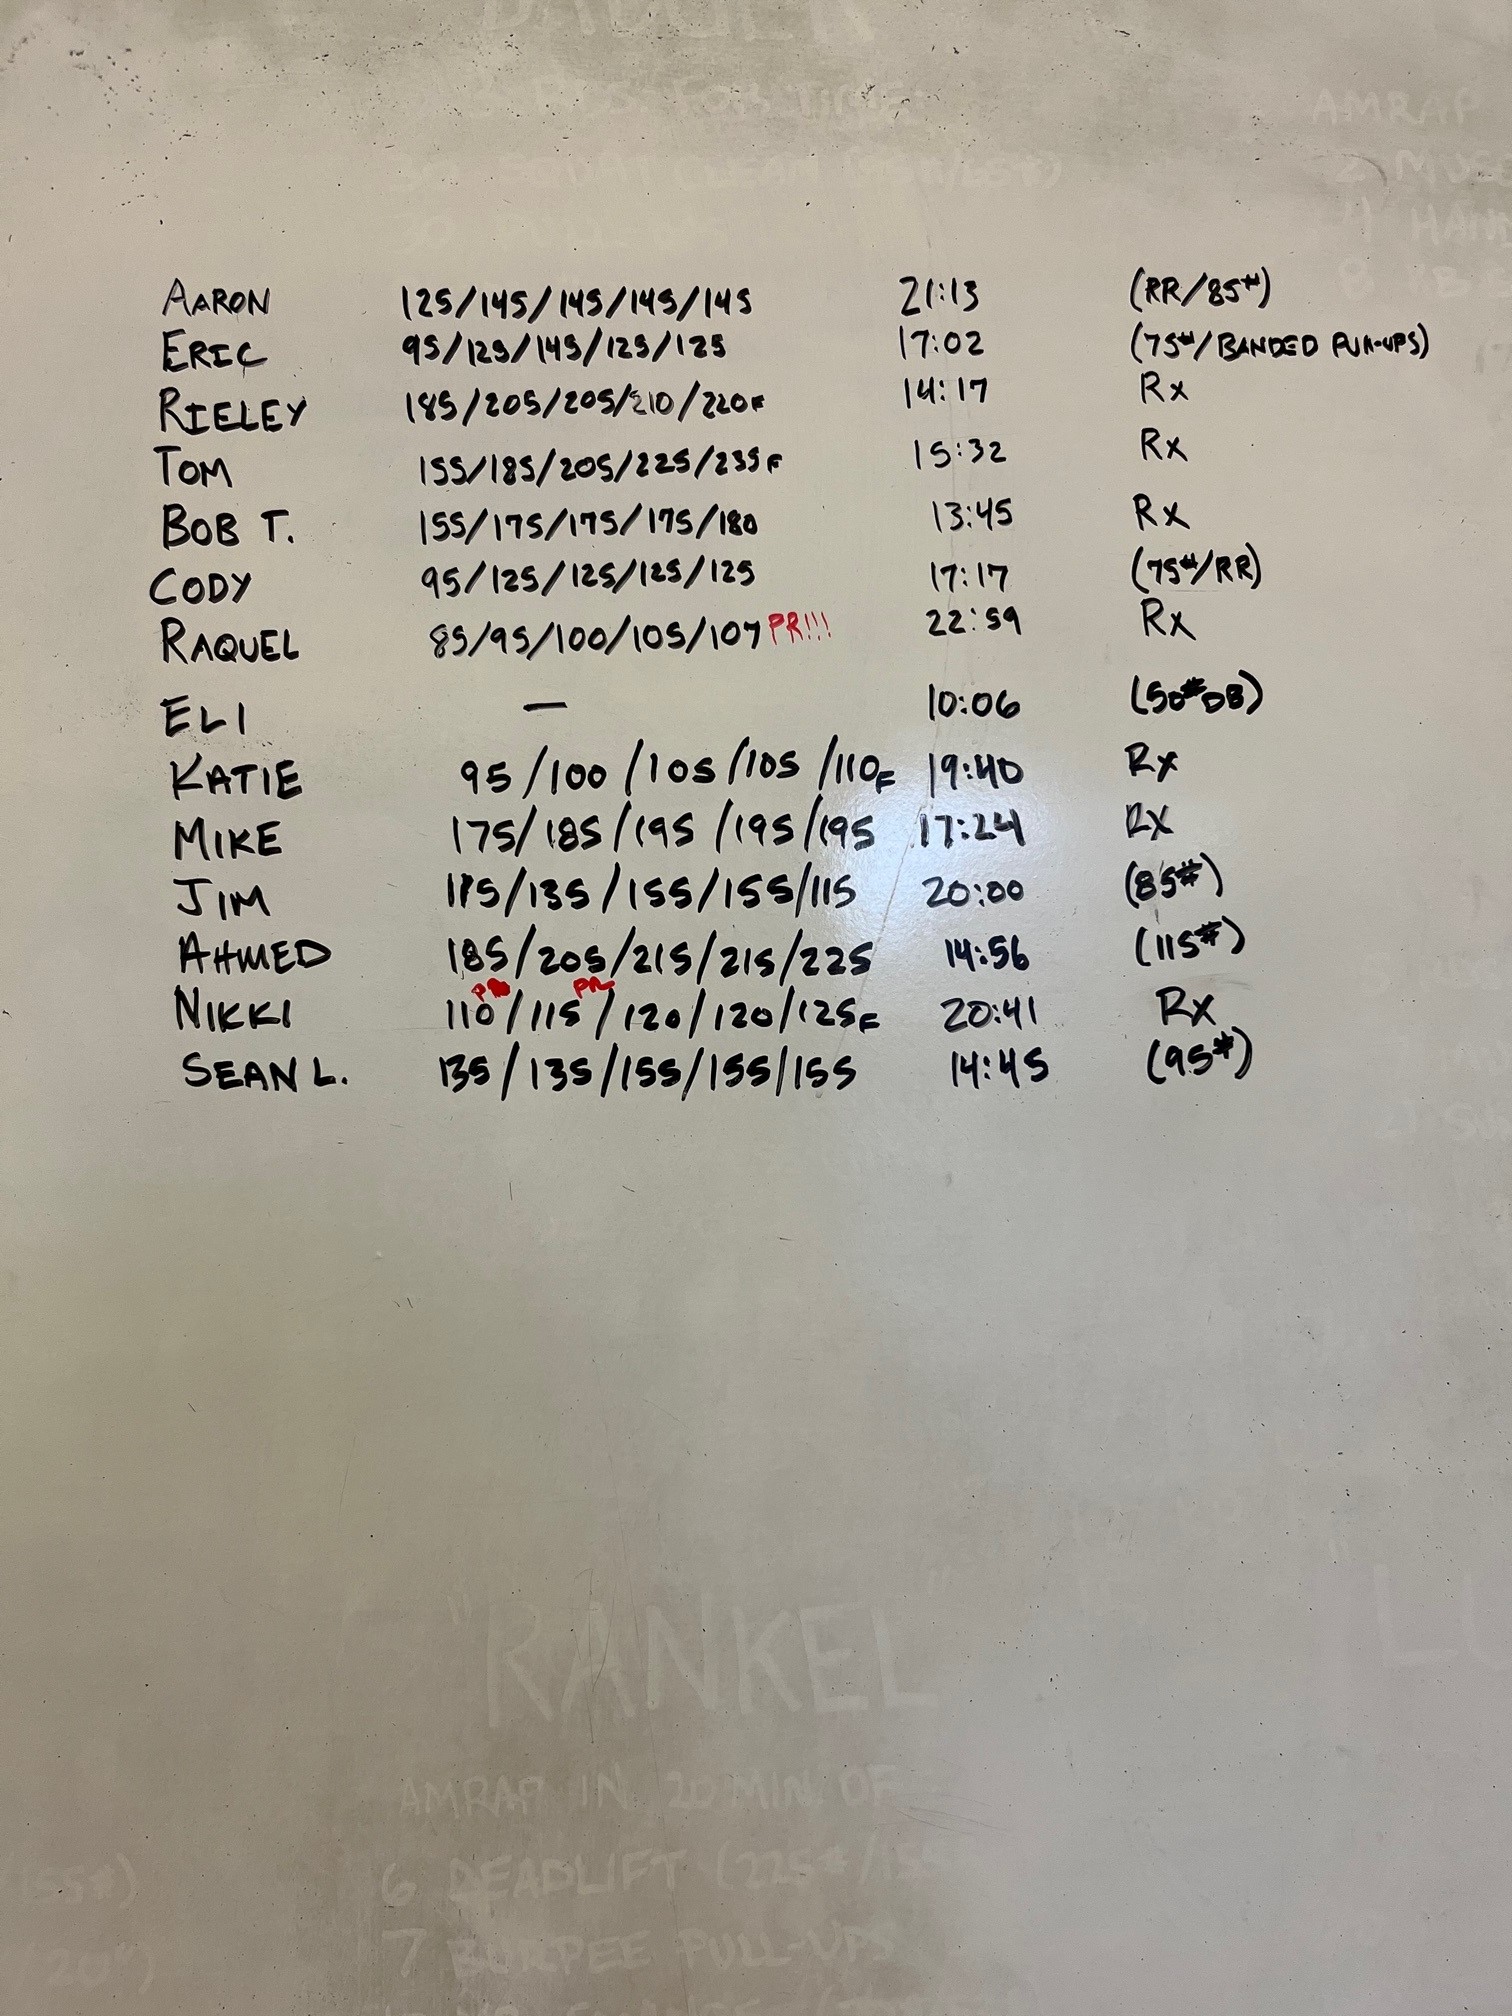 AMRAP
AARON 125/145/145/145/145 21:13 (RR/85#)
ERIC 95/125/145/125/125 17:02 (75#/BANDED PULL-UPS)
RIELEY 185/205/205/210/220F 14:17 Rx
TOM 155/185/205/225/235F 15:32 Rx
BOB T. 155/175/175/175/180 13:45 Rx
CODY 95/125/125/125/125 17:17 (75#/RR)
RAQUEL 85/95/100/105/107 PR!!! 22:59 Rx
ELI — 10:06 (50# DB)
KATIE 95/100/105/105/110F 19:40 Rx
MIKE 175/185/195/195/195 17:24 RX
JIM 115/135/155/155/115 20:00 (85#)
AHMED 185/205/215/215/225 14:56 (115#)
PR PR
NIKKI 110/115/120/120/125F 20:41 RX
SEAN L. 135/135/155/155/155 14:45 (95#)
"RANKEL"
AMRAP IN 20 MIN OF
6 DEADLIFT (225#/155
7 BURPEE PULL-UPS